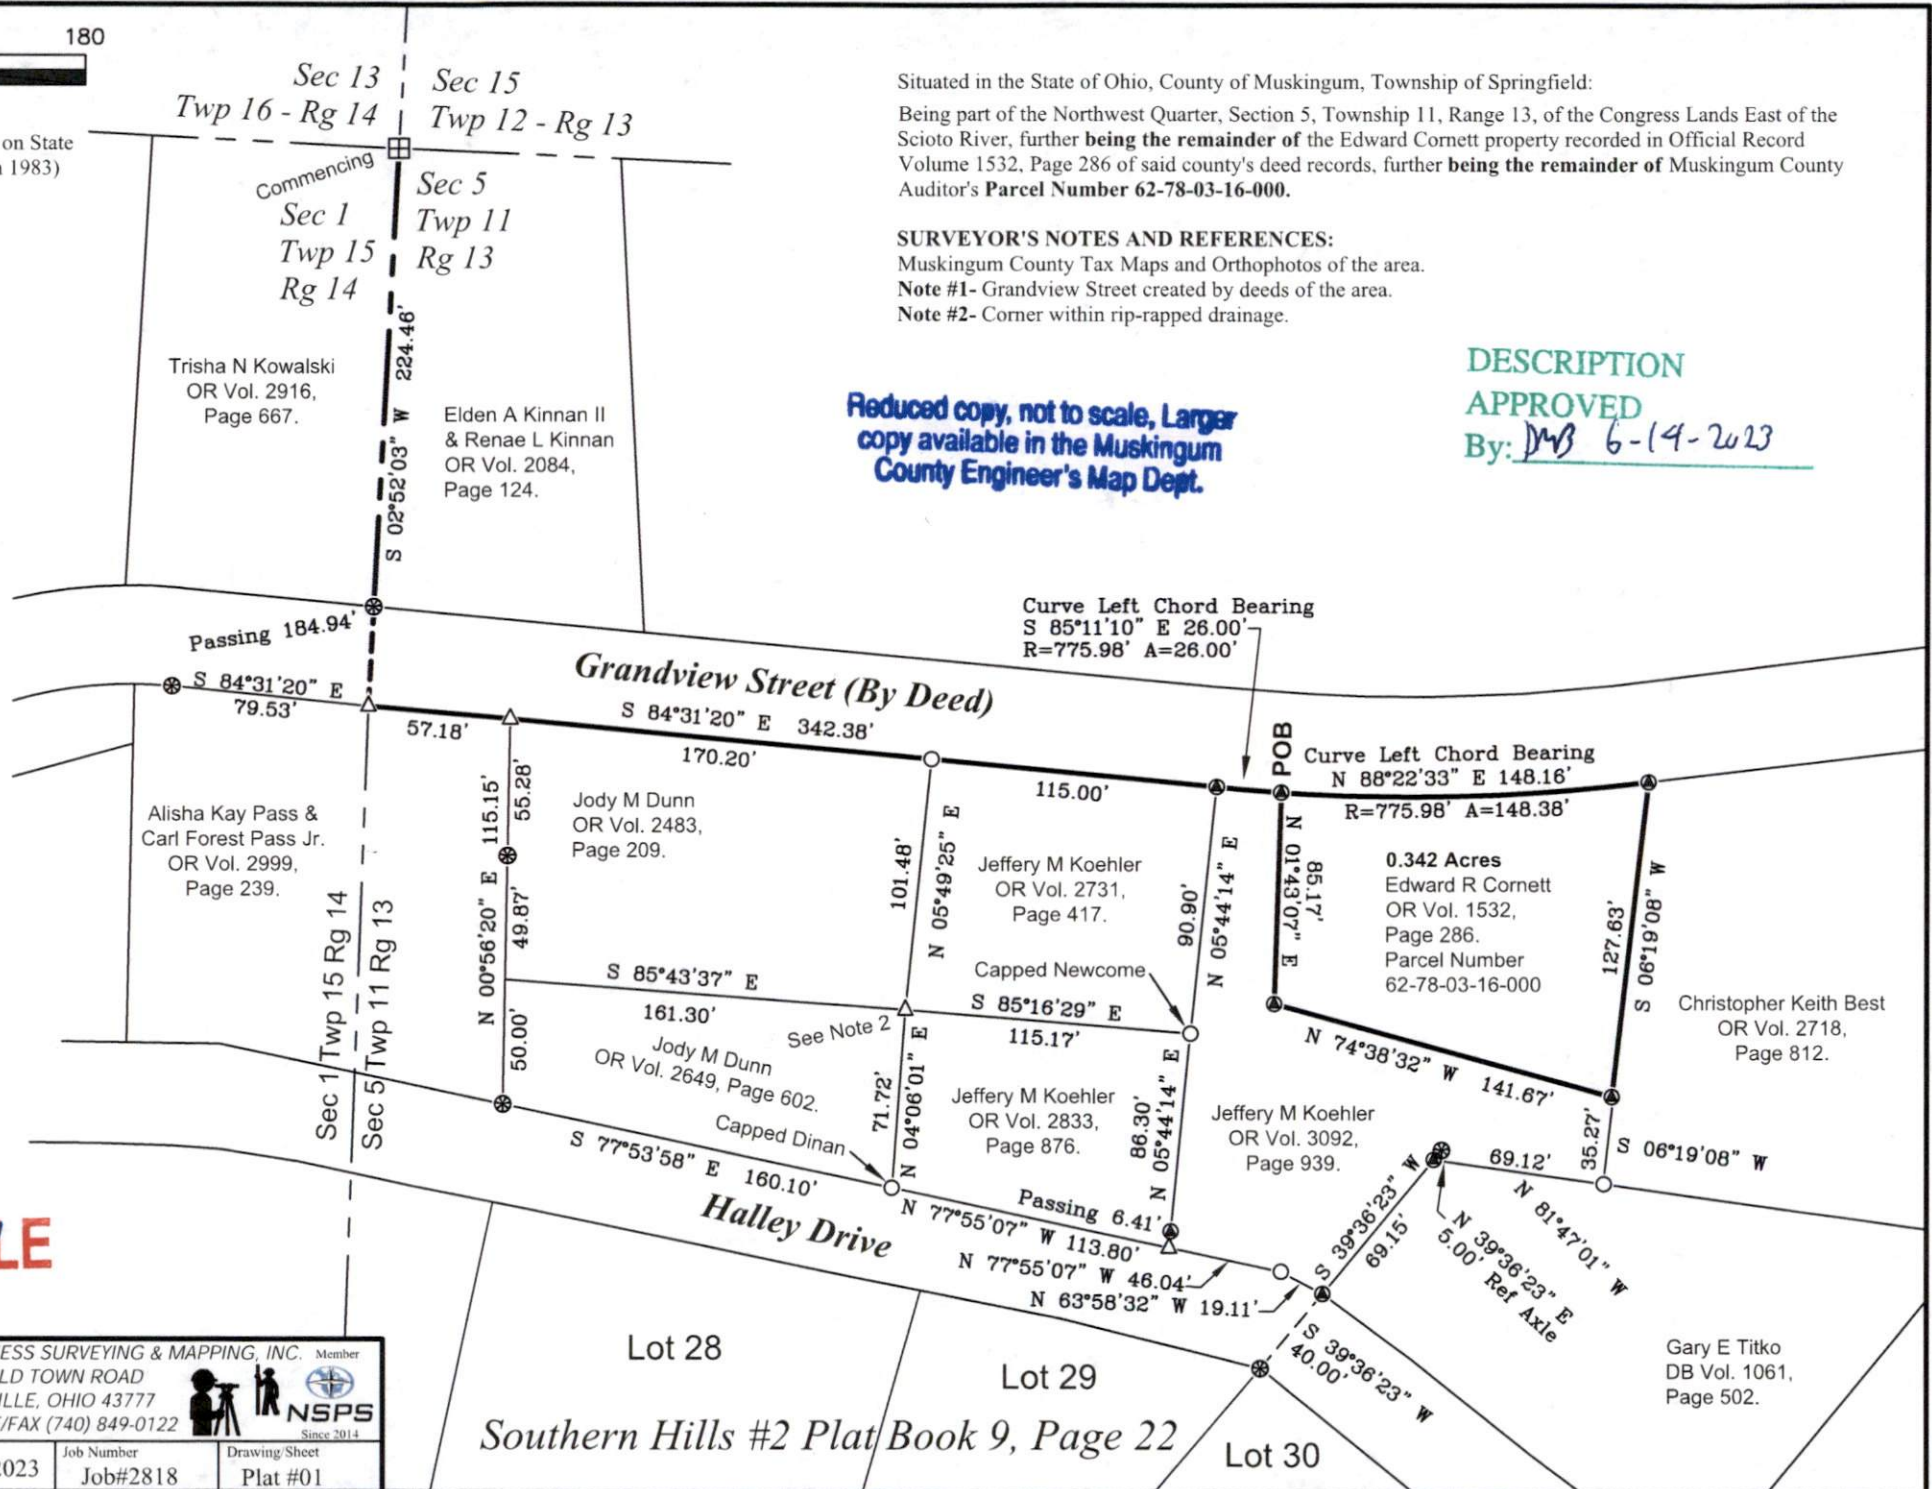 180
on State
1983)
Sec 13
Twp 16 - Rg 14
Sec 15
Twp 12 - Rg 13
Commencing
Sec 1
Twp 15
Rg 14
Sec 5
Twp 11
Rg 13
Situated in the State of Ohio, County of Muskingum, Township of Springfield:
Being part of the Northwest Quarter, Section 5, Township 11, Range 13, of the Congress Lands East of the
Scioto River, further being the remainder of the Edward Cornett property recorded in Official Record
Volume 1532, Page 286 of said county's deed records, further being the remainder of Muskingum County
Auditor's Parcel Number 62-78-03-16-000.
SURVEYOR'S NOTES AND REFERENCES:
Muskingum County Tax Maps and Orthophotos of the area.
Note #1- Grandview Street created by deeds of the area.
Note #2- Corner within rip-rapped drainage.
Reduced copy, not to scale, Larger
copy available in the Muskingum
County Engineer's Map Dept.
DESCRIPTION
APPROVED
By: DMB 6-14-2023
Trisha N Kowalski
OR Vol. 2916,
Page 667.
S 02°52'03" W 224.46'
Elden A Kinnan II
& Renae L Kinnan
OR Vol. 2084,
Page 124.
Passing 184.94'
S 84°31'20" E
79.53'
57.18'
Grandview Street (By Deed)
S 84°31'20" E 342.38'
170.20'
115.00'
Curve Left Chord Bearing
S 85°11'10" E 26.00'
R=775.98' A=26.00'
POB
Curve Left Chord Bearing
N 88°22'33" E 148.16'
R=775.98' A=148.38'
Alisha Kay Pass &
Carl Forest Pass Jr.
OR Vol. 2999,
Page 239.
Sec 1 Twp 15 Rg 14
Sec 5 Twp 11 Rg 13
N 00°56'20" E 115.15'
55.28'
49.87'
50.00'
Jody M Dunn
OR Vol. 2483,
Page 209.
101.48'
N 05°49'25" E
Jeffery M Koehler
OR Vol. 2731,
Page 417.
90.90'
N 05°44'14" E
N 01°43'07" E
85.17'
0.342 Acres
Edward R Cornett
OR Vol. 1532,
Page 286.
Parcel Number
62-78-03-16-000
127.63'
S 06°19'08" W
Christopher Keith Best
OR Vol. 2718,
Page 812.
Capped Newcome
S 85°43'37" E
161.30'
See Note 2
S 85°16'29" E
115.17'
Jody M Dunn
OR Vol. 2649, Page 602.
Capped Dinan
71.72'
N 04°06'01" E
Jeffery M Koehler
OR Vol. 2833,
Page 876.
86.30'
N 05°44'14" E
N 74°38'32" W 141.67'
Jeffery M Koehler
OR Vol. 3092,
Page 939.
35.27'
S 06°19'08" W
69.12'
N 81°47'01" W
S 39°36'23" W
69.15'
N 39°36'23" E
5.00' Ref Axle
S 77°53'58" E 160.10'
Halley Drive
Passing 6.41'
N 77°55'07" W 113.80'
N 77°55'07" W 46.04'
N 63°58'32" W 19.11'
S 39°36'23" W
40.00'
Gary E Titko
DB Vol. 1061,
Page 502.
LE
Lot 28
Lot 29
Lot 30
Southern Hills #2 Plat Book 9, Page 22
ESS SURVEYING & MAPPING, INC.
LD TOWN ROAD
ILLE, OHIO 43777
/FAX (740) 849-0122
Member
NSPS
Since 2014
2023
Job Number
Job#2818
Drawing/Sheet
Plat #01